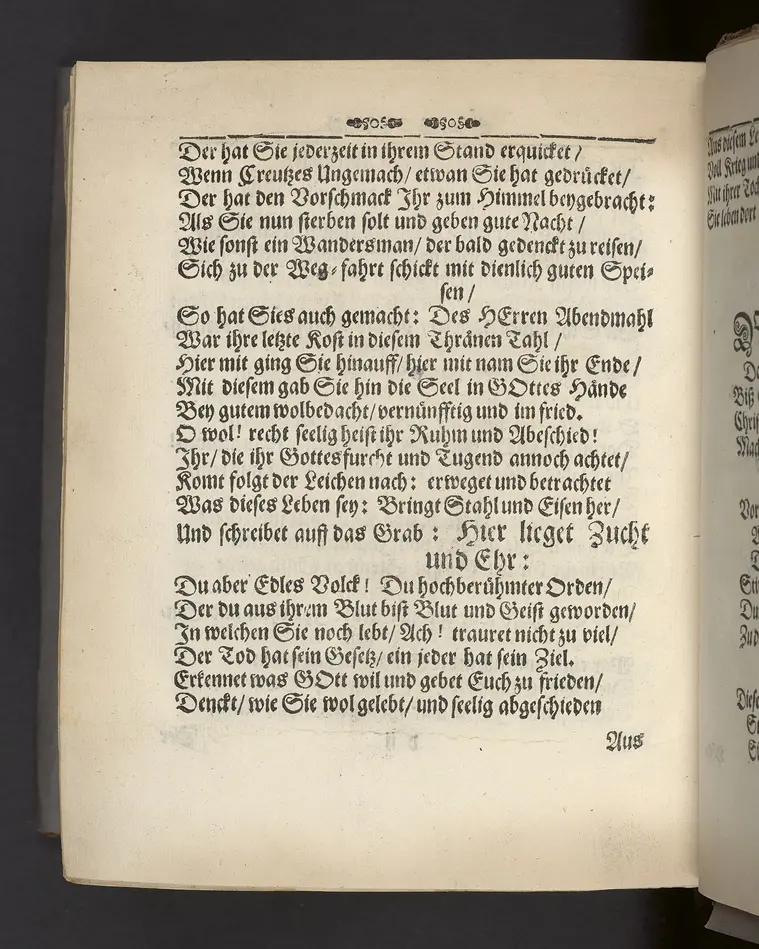 Der hat Sie jederzeit in ihrem Stand erquicket /
Wenn Creutzes Ungemach / etwan Sie hat gedrücket /
Der hat den Vorschmack Ihr zum Himmel beygebracht:
Als Sie nun sterben solt und geben gute Nacht /
Wie sonst ein Wandersman / der bald gedenckt zu reisen /
Sich zu der Weg-fahrt schickt mit dienlich guten Spei-
sen /
So hat Sies auch gemacht: Des HErren Abendmahl
War ihre letzte Kost in diesem Thränen Tahl /
Hier mit ging Sie hinauff / hier mit nam Sie ihr Ende /
Mit diesem gab Sie hin die Seel in GOttes Hände
Bey gutem wolbedacht / vernünfftig und im fried.
O wol! recht seelig heist ihr Ruhm und Abeschied!
Ihr / die ihr Gottesfurcht und Tugend annoch achtet /
Komt folgt der Leichen nach: erweget und betrachtet
Was dieses Leben sey: Bringt Stahl und Eisen her /
Und schreibet auff das Grab: Hier lieget Zucht
und Ehr:
Du aber Edles Volck! Du hochberühmter Orden /
Der du aus ihrem Blut bist Blut und Geist geworden /
In welchen Sie noch lebt / Ach! trauret nicht zu viel /
Der Tod hat sein Gesetz / ein jeder hat sein Ziel.
Erkennet was GOtt wil und gebet Euch zu frieden /
Denckt / wie Sie wol gelebt / und seelig abgeschieden
Aus
Aus diesem
Voll Krieg
Mit ihrer
Sie leben dort
Biß